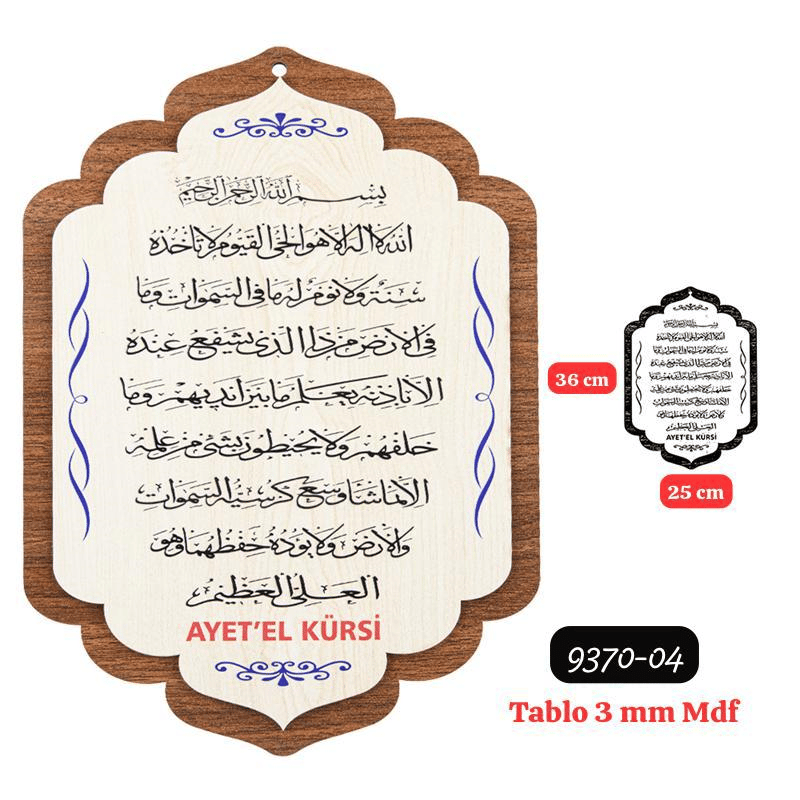 بسم الله الرحمن الرحيم
الله لا اله الا هو الحي القيوم لا تاخذه
سنة ولا نوم له ما في السموات وما
في الارض من ذا الذي يشفع عنده
الا باذنه يعلم ما بين ايديهم وما
خلفهم ولا يحيطون بشئ من علمه
الا بما شا وسع كرسيه السموات
والارض ولا يؤده حفظهما وهو
العلي العظيم
AYET'EL KÜRSİ
36 cm
AYET'EL KÜRSİ
25 cm
9370-04
Tablo 3 mm Mdf